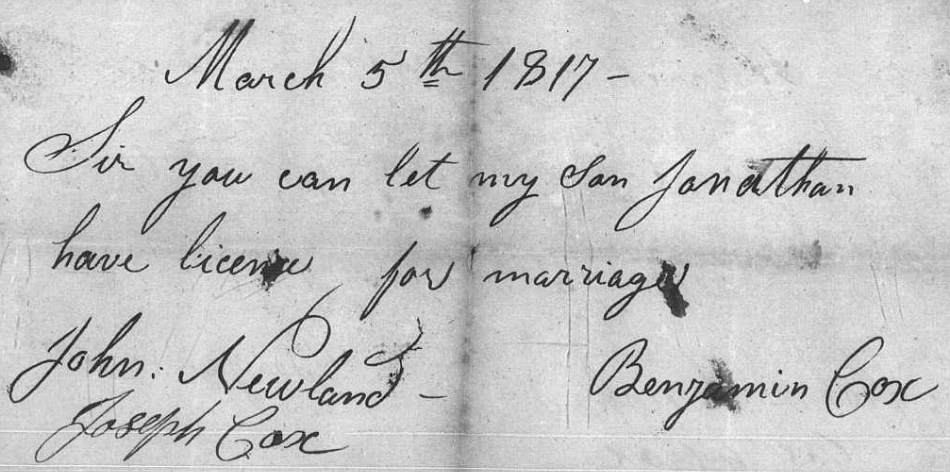 March 5th 1817 -
Sir you can let my son Jonathan
have licence for marriage
John. Newland -
Benjamin Cox
Joseph Cox